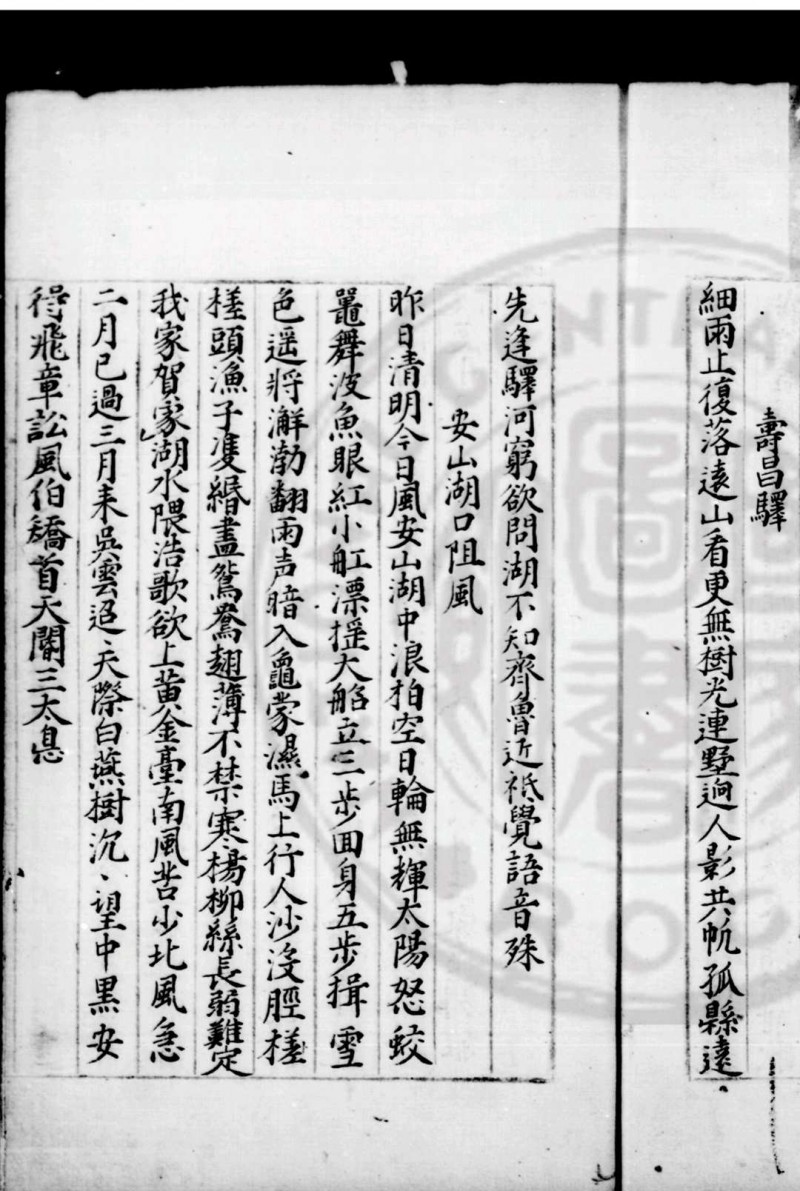 壽昌驛
細雨止復落遠山看更無樹光連墅逈人影共帆孤縣遠
先逢驛河窮欲問湖不知齊魯近祇覺語音殊
安山湖口阻風
昨日清明今日風安山湖中浪拍空日輪無輝太陽怒蛟
鼉舞波魚眼紅小舡漂摇大船立三步回身五步揖雪
色遥將澥渤翻雨声暗入龜蒙濕馬上行人沙没脛槎
槎頭漁子隻緡盡鴛鴦翅薄不禁寒楊柳絲長弱難定
我家賀家湖水隈浩歌欲上黄金臺南風苦少北風急
二月已過三月来吳雲迢、天際白燕樹沉、望中黒安
得飛章訟風伯矯首天閽三太息